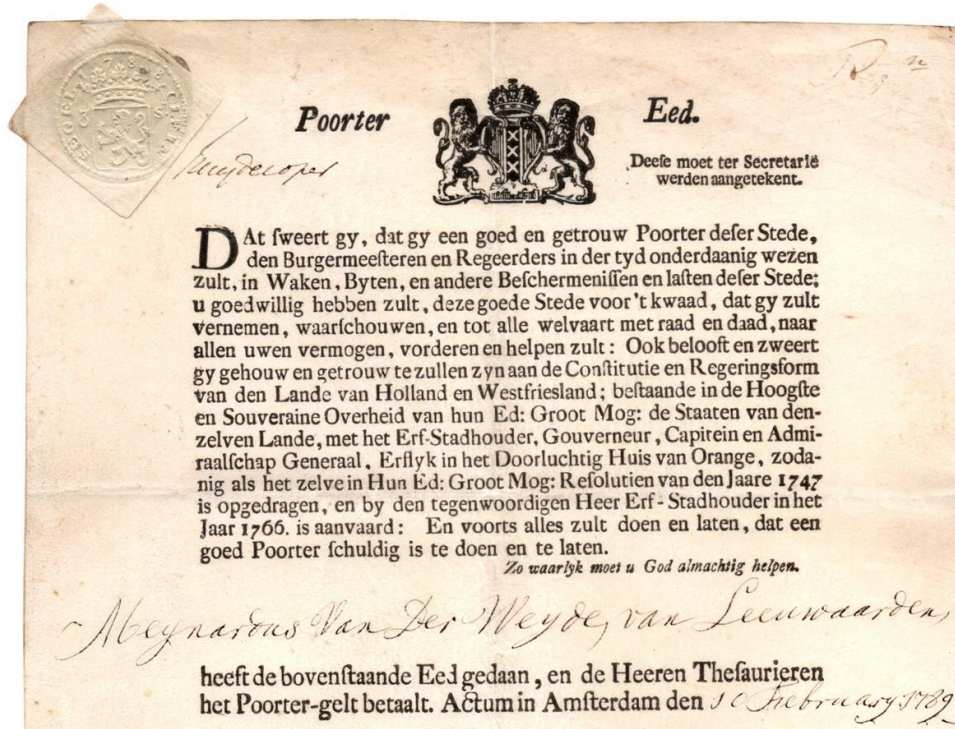 Poorter Eed.
Deese moet ter Secretarië
werden aangetekent.
DAt sweert gy, dat gy een goed en getrouw Poorter deser Stede,
den Burgermeesteren en Regeerders in der tyd onderdaanig wezen
zult, in Waken, Byten, en andere Beschermenissen en lasten deser Stede;
u goedwillig hebben zult, deze goede Stede voor't kwaad, dat gy zult
vernemen, waarschouwen, en tot alle welvaart met raad en daad, naar
allen uwen vermogen, vorderen en helpen zult: Ook belooft en zweert
gy gehouw en getrouw te zullen zyn aan de Constitutie en Regeringsform
van den Lande van Holland en Westfriesland; bestaande in de Hoogste
en Souveraine Overheid van hun Ed: Groot Mog: de Staaten van den-
zelven Lande, met het Erf-Stadhouder, Gouverneur, Capitein en Admi-
raalschap Generaal, Erflyk in het Doorluchtig Huis van Orange, zoda-
nig als het zelve in Hun Ed: Groot Mog: Resolutien van den Jaare 1747
is opgedragen, en by den tegenwoordigen Heer Erf-Stadhouder in het
Jaar 1766. is aanvaard: En voorts alles zult doen en laten, dat een
goed Poorter schuldig is te doen en te laten.
Zo waarlyk moet u God almachtig helpen.
Meynardus Van Der Weyde, van Leeuwaarden,
heeft de bovenstaande Eed gedaan, en de Heeren Thesaurieren
het Poorter-gelt betaalt. Actum in Amsterdam den 10 February 1789